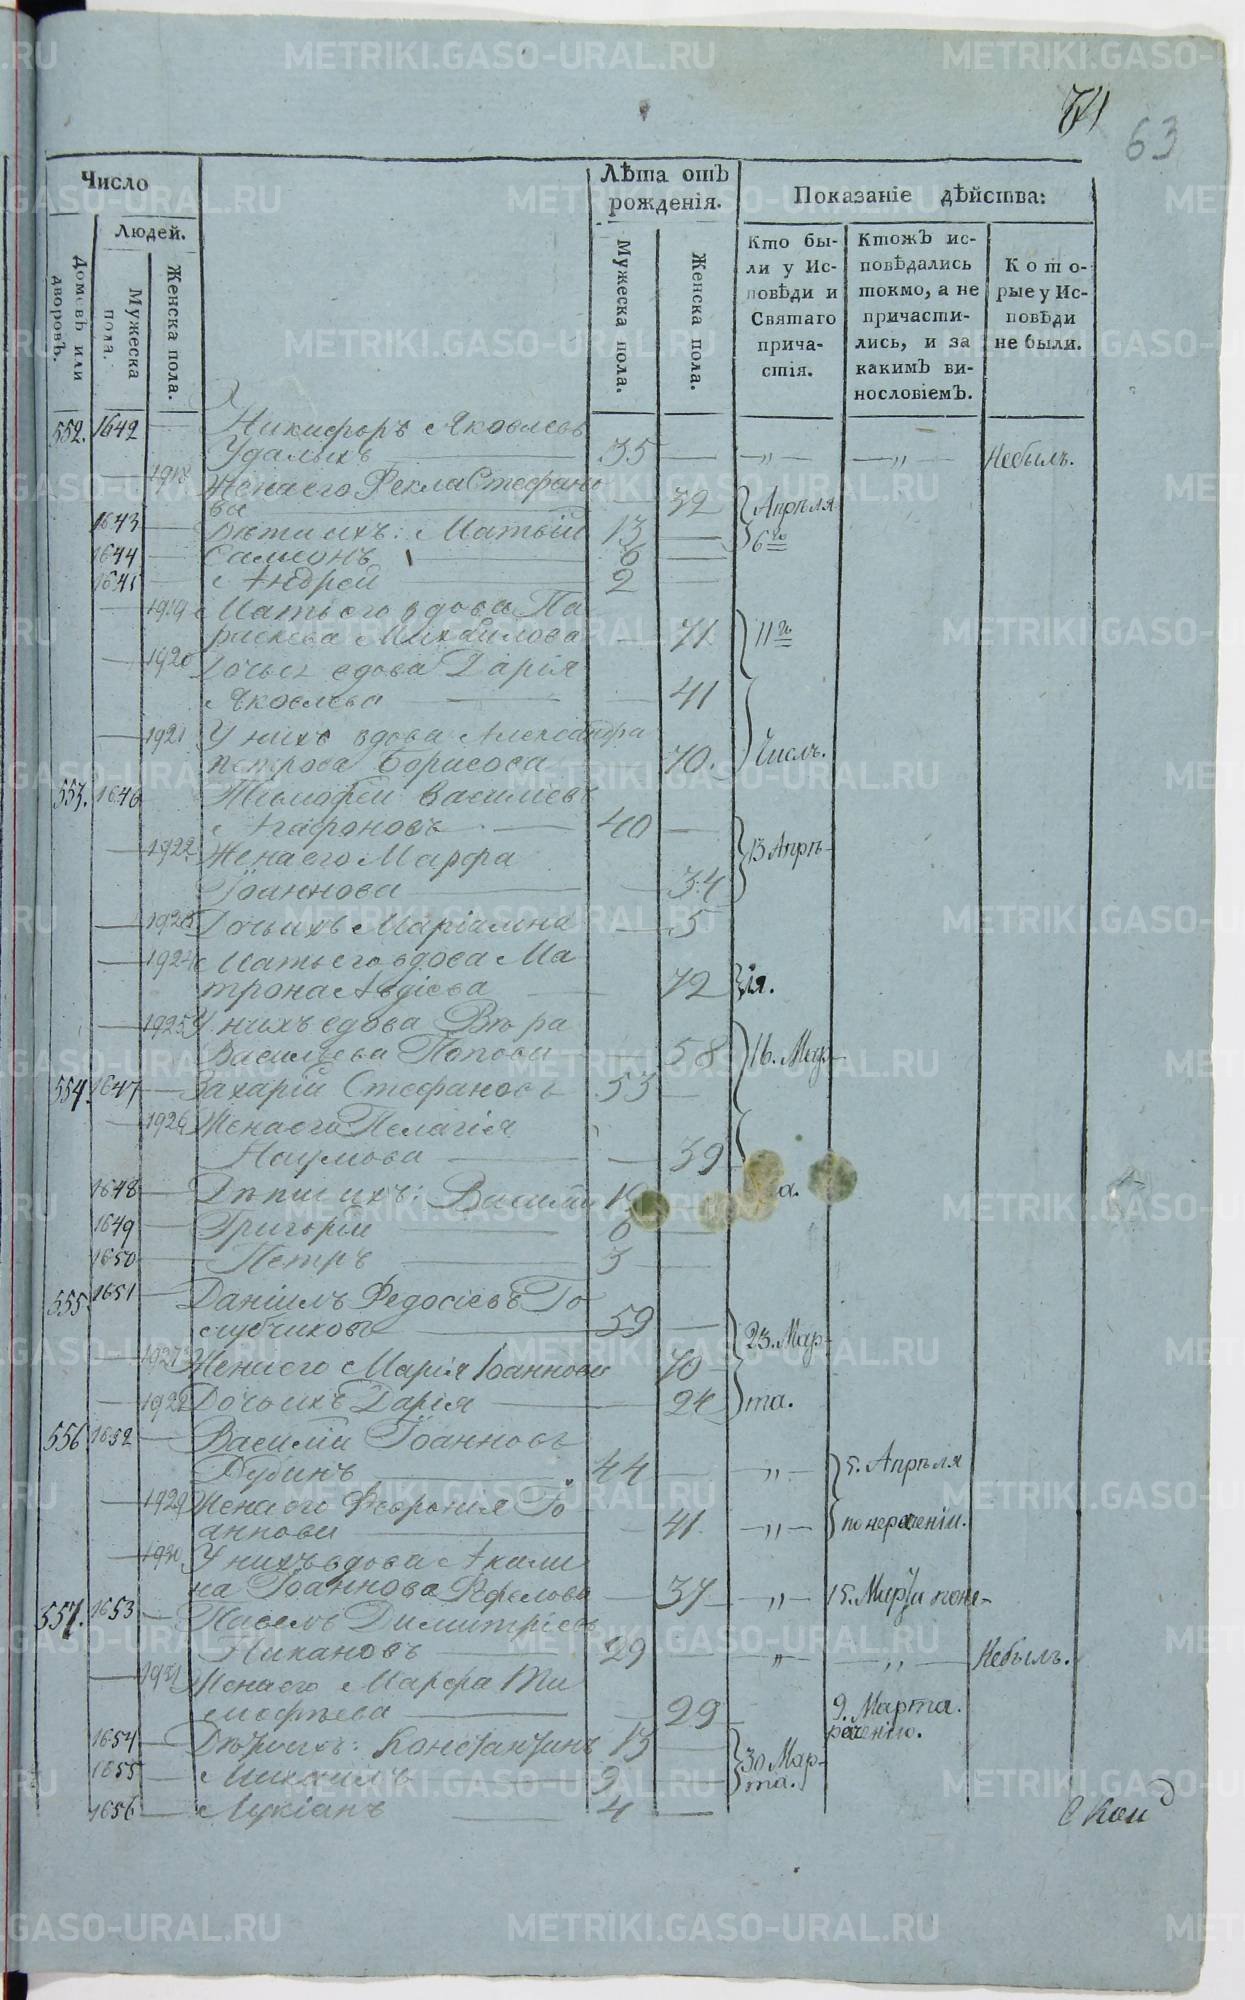 71
63
Число
Людей.
Домовъ или дворовъ.
Мужеска пола.
Женска пола.
Лѣта отъ
рожденія.
Мужеска пола.
Женска пола.
Показаніе дѣйства:
Кто бы-
ли у Ис-
повѣди и
Святаго
прича-
стія.
Ктожъ ис-
повѣдались
токмо, а не
причасти-
лись, и за
какимъ ви-
нословіемъ.
Кото-
рые у Ис-
повѣди
не были.
552. 1642 — Никифоръ Яковлевъ
Удалыхъ — 35 — „ — „ — Небылъ.
— 1918 Жена его Фекла Стефано
ва — 32 Апрѣля
1643 — Дѣти ихъ: Матвѣй 13 — 6го
1644 — Самсонъ 6 —
1645 — Андрей 2 —
— 1919 Мать его вдова Па
раскева Михайлова — 71 11го
— 1920 Дочь ея вдова Дарія
Яковлева — 41
— 1921 У нихъ вдова Александра
Петрова Борисова — 70. Числъ.
553. 1646 Тимофей Василіевъ
Агафоновъ — 40 —
— 1922 Жена его Марфа 13 Апрѣ-
Іоаннова — 34
— 1923 Дочь ихъ Маріамна — 5
— 1924 Мать его вдова Ма
трона Авдіева — 72 ля.
— 1925 У нихъ вдова Вѣра
Василіева Попова 58 16. Мар-
554. 1647 — Захарій Стефановъ 53 —
— 1926 Жена его Пелагія
Наумова — 39
1648 — Дѣти ихъ: Василій 19 — та.
1649 — Григорій 6 —
1650 — Петръ 3 —
555 1651 — Даніилъ Федосіевъ Го
лубчиковъ — 59 — 23. Мар-
— 1927 Жена его Марія Іоаннова 70
— 1928 Дочь ихъ Дарія — 24 та.
556 1652 — Василій Іоанновъ
Дубинъ — 44 — „ — 5. Апрѣля
— 1929 Жена его Феоронія Іо
аннова — 41. — „ — по нераченію.
— 1930 У нихъ вдова Акили
на Іоаннова — 37 — „ — 15. Марта
557. 1653 — Павелъ Димитріевъ
Никановъ — 29 — „ — „ — Небылъ.
— 1931 Жена его Марфа Ти
мофѣева — 29 — 9. Марта.
раченію.
1654 — Дѣти ихъ: Константинъ 13 —
1655 — Михаилъ 9 — 30 Мар-
та.
1656 — Лукіанъ 4 —